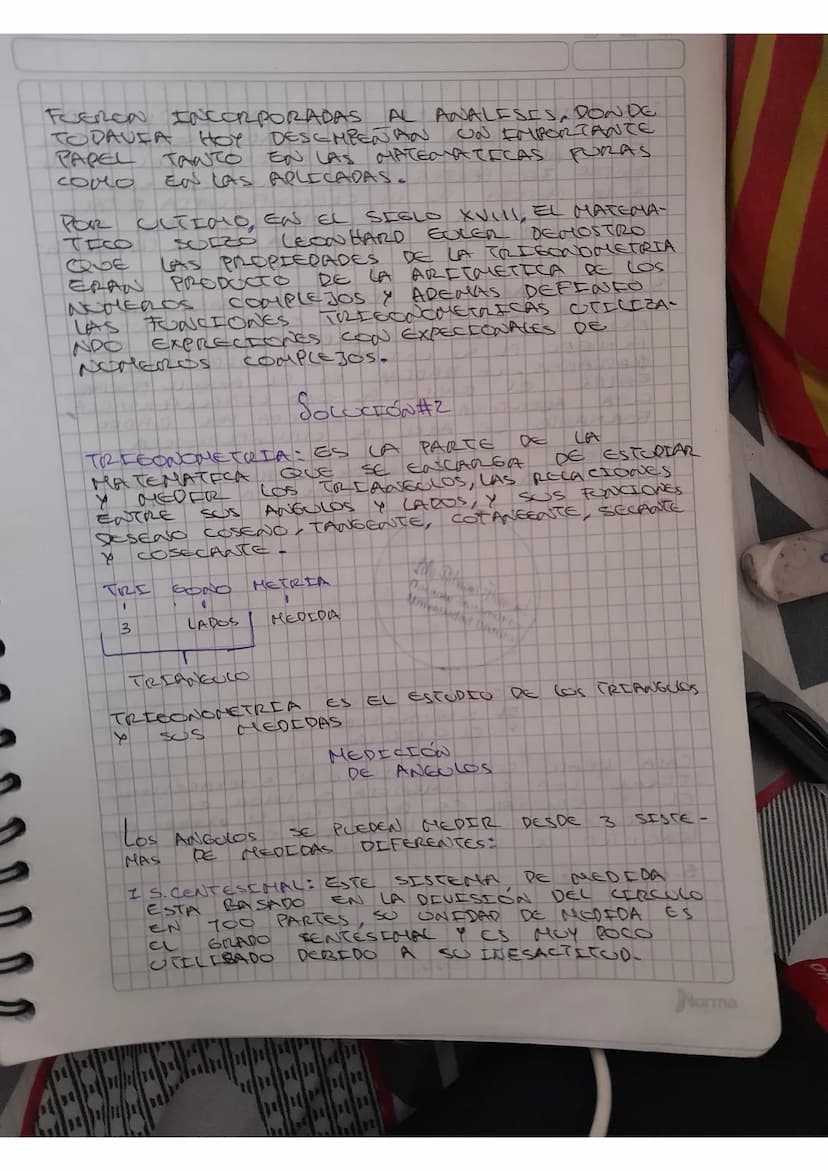 FUERON INCORPORADAS AL ANALESIS, DONDE
TODAVIA HOY DESEMPEÑAN UN IMPORTANTE
PAPEL TANTO EN LAS MATEMATICAS PURAS
COMO EN LAS APLICADAS.
POR ULTIMO, EN EL SIGLO XVIII, EL MATEMA-
TICO SUIZO LEONHARD EULER DEMOSTRO
QUE LAS PROPIEDADES DE LA TRIGONOMETRIA
ERAN PRODUCTO DE LA ARITMETICA DE LOS
NUMEROS COMPLEJOS Y ADEMAS DEFINIO
LAS FUNCIONES TRIGONOMETRICAS UTILIZA-
NDO EXPRECIONES CON EXPECIONALES DE
NUMEROS COMPLEJOS.
SOLUCIÓN #2
TRIGONOMETRIA: ES LA PARTE DE LA
MATEMATECA QUE SE ENCARGA DE ESTUDIAR
Y MEDER LOS TRIANGULOS, LAS RELACIONES
ENTRE SUS ANGULOS Y LADOS, Y SUS FUNCIONES
SESENO COSENO, TANGENTE, COTANGENTE, SECANTE
Y COSECANTE.
TRI GONO METRIA
3 LADOS MEDIDA
TRIANGULO
TRIGONOMETRIA ES EL ESTUDIO DE LOS TRIANGULOS
Y SUS MEDIDAS
MEDICIÓN
DE ANGULOS
LOS ANGULOS SE PUEDEN MEDIR DESDE 3 SISTE-
MAS DE MEDIDAS DIFERENTES:
1 S.CENTESIMAL: ESTE SISTEMA DE MEDIDA
ESTA BASADO EN LA DEVISIÓN DEL CIRCULO
EN 400 PARTES, SU UNIDAD DE MEDIDA ES
EL GRADO SENTESIMAL Y ES MUY POCO
UTILISADO DEBIDO A SU INESACTITUD.
Norma